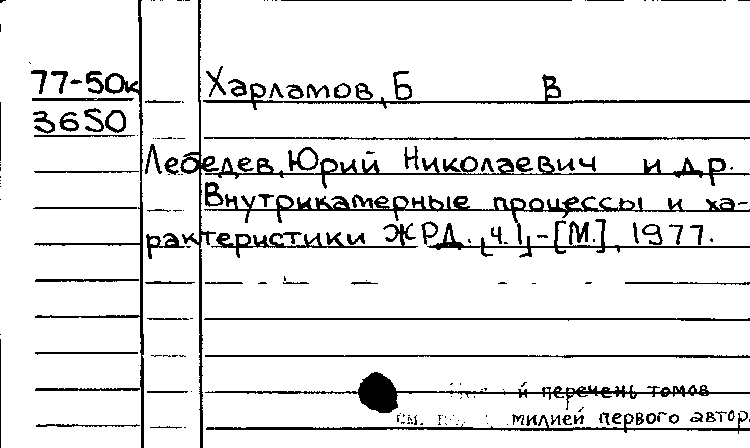 77-50к Харламов, Б В
3650
Лебедев, Юрий Николаевич и др.
Внутрикамерные процессы и ха-
рактеристики ЖРД. [ч.1]-[М.], 1977.
й перечень томов
см. милией первого автор